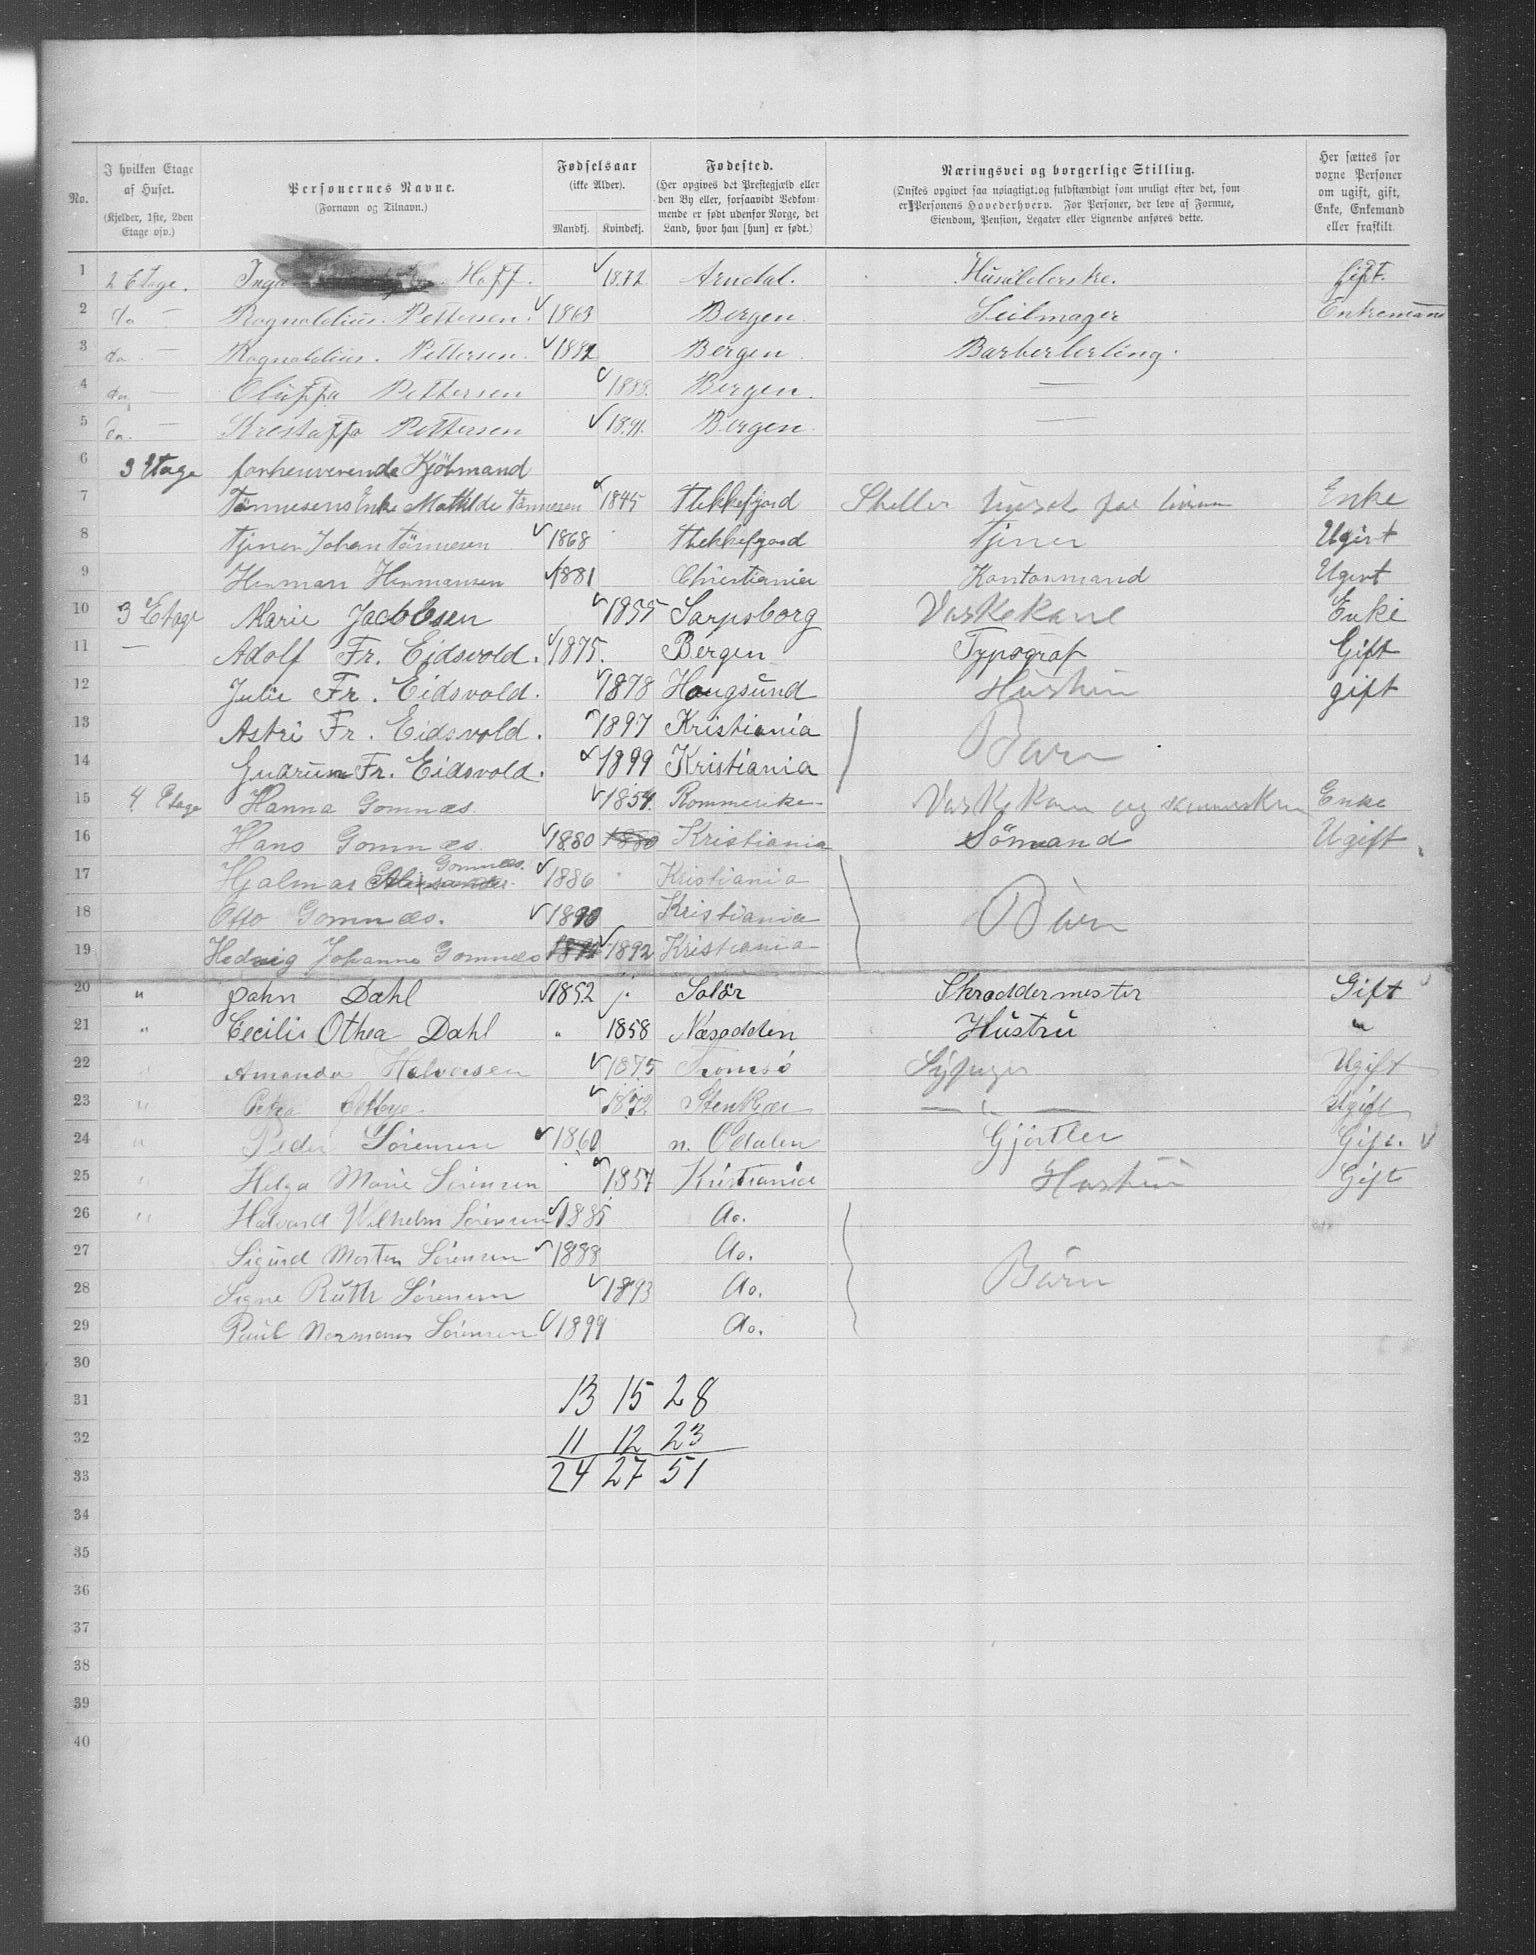 No.
I hvilken Etage af Huset.
(Kjelder, 1ste, 2den Etage osv.)
Personernes Navne.
(Fornavn og Tilnavn.)
Fødselsaar
(ikke Alder).
Mandkj. Kvindekj.
Fødested.
(Her opgives det Prestegjæld eller den By eller, forsaavidt Vedkommende er født udenfor Norge, det Land, hvor han [hun] er født.)
Næringsvei og borgerlige Stilling.
(Ønskes opgivet saa nøiagtigt og fuldstændigt som muligt efter det, som er Personens Hovederhverv. For Personer, der leve af Formue, Eiendom, Pension, Legater eller Lignende anføres dette.
Her sættes for voxne Personer om ugift, gift, Enke, Enkemand eller fraskilt.
1 2 Etage. Inga Hoff. 1872 Arndal. Husälderske. gift.
2 do — Rognaldius. Pettersen. 1863 Bergen. Seilmager Enkemand
3 do. — Rognaldius. Pettersen. 1882 Bergen. Barberlerling.
4 do. — Oluffa Pettersen 1883. Bergen. —
5 do. — Krestaffa Pettersen 1891. Bergen. —
6 3 Etage forhenverende Kjöbmand
7 Tönnesens Enke Mathilde Tönnesen 1845 Flekkefjord Steller huset for Enke
8 Tjener Johan Tönnesen 1868 Flekkefjord Tjener Ugivt
9 Herman Hermansen 1881 Christiania Kontormand Ugivt
10 3 Etage Marie Jacobsen 1855 Sarpsborg Vaskekone Enke
11 — Adolf Fr. Eidsvold. 1875. Bergen Typograf Gift
12 Julie Fr. Eidsvold. 1878 Haugsund Hustru gift
13 Astri Fr. Eidsvold. 1897 Kristiania
14 Gudrun Fr. Eidsvold. 1899 Kristiania Barn
15 4 Etage Hanna Gomnæs. 1854. Rommerike Vaskekone og Enke
16 Hans Gomnæs. 1880 1880 Kristiania Sömand Ugift
17 Hjalmar Aleksander Gomnæs. 1886 Kristiania
18 Otto Gomnæs. 1890 Kristiania Börn
19 Hedvig Johanne Gomnæs 1892 Kristiania
20 " John Dahl 1852 Solör Skræddermester Gift
21 " Cecilie Othea Dahl " 1858 Næsodden Hustru "
22 " Amanda Halvorsen 1875 Tromsö Sypige Ugift
23 " Petra 1872 Stenkjær — " — Ugift
24 " Peder Sörensen 1860 n. Odalen Gjörtler Gift.
25 " Helga Marie Sörensen 1857 Kristiania Hustru Gift
26 " Halvard Wilhelm Sörensen 1885 do.
27 Sigurd Morten Sörensen 1888 do.
28 Signe Ruth Sörensen 1893 do. Börn
29 Paul Normann Sörensen 1899 do.
30
31 13 15 28
32 11 12 23
33 24 27 51
34
35
36
37
38
39
40